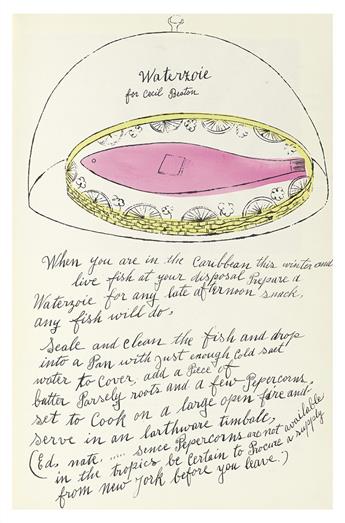 Waterzoie
for Cecil Beaton
When you are in the Caribbean this winter and
live fish at your disposal Prepare a
Waterzoie for any late afternoon snack,
any fish will do,
Scale and clean the fish and drop
into a Pan with just enough Cold salt
water to Cover, add a Piece of
butter Parsely roots and a few Pepercorns,
set to Cook on a large open fire and
serve in an earthware timbale,
(Ed, note, ..... sence Pepercorns are not available
in the tropics be Certain to Procure a supply
from New York before you leave.)